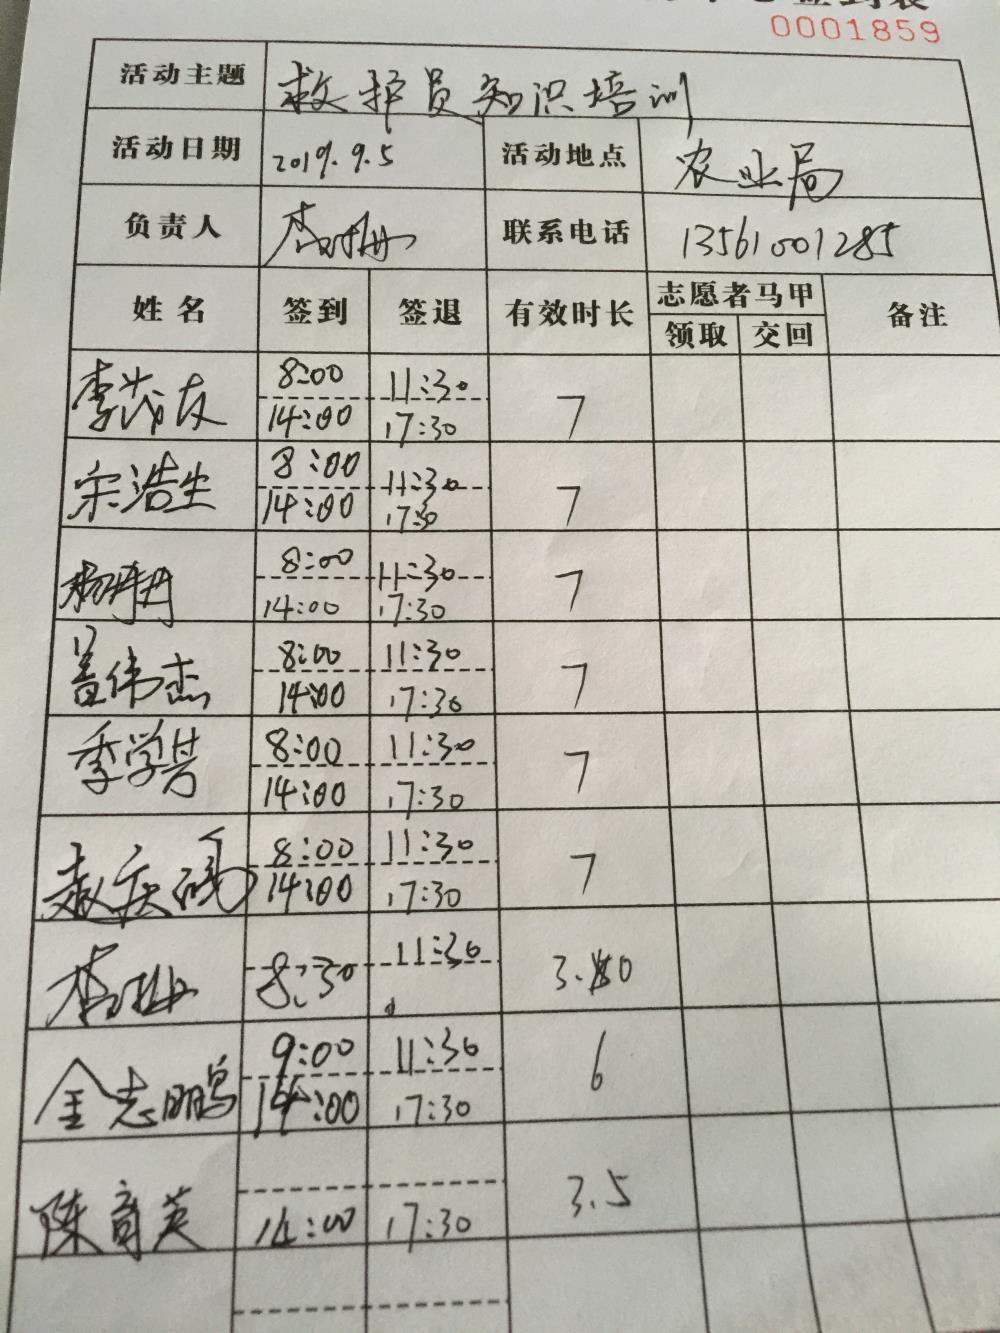 签到表
0001859
活动主题 救护员知识培训
活动日期 2019.9.5 活动地点 农业局
负责人 联系电话 13561001285
姓名 签到 签退 有效时长 志愿者马甲 备注
领取 交回
李茂友 8:00 11:30 7
14:00 17:30
宋浩生 8:00 11:30 7
14:00 17:30
杨丹丹 8:00 11:30 7
14:00 17:30
伟杰 8:00 11:30 7
14:00 17:30
季学芳 8:00 11:30 7
14:00 17:30
赵 8:00 11:30 7
14:00 17:30
李 8:30 11:30 3.0
金志鹏 9:00 11:30 6
14:00 17:30
陈育英 14:00 17:30 3.5